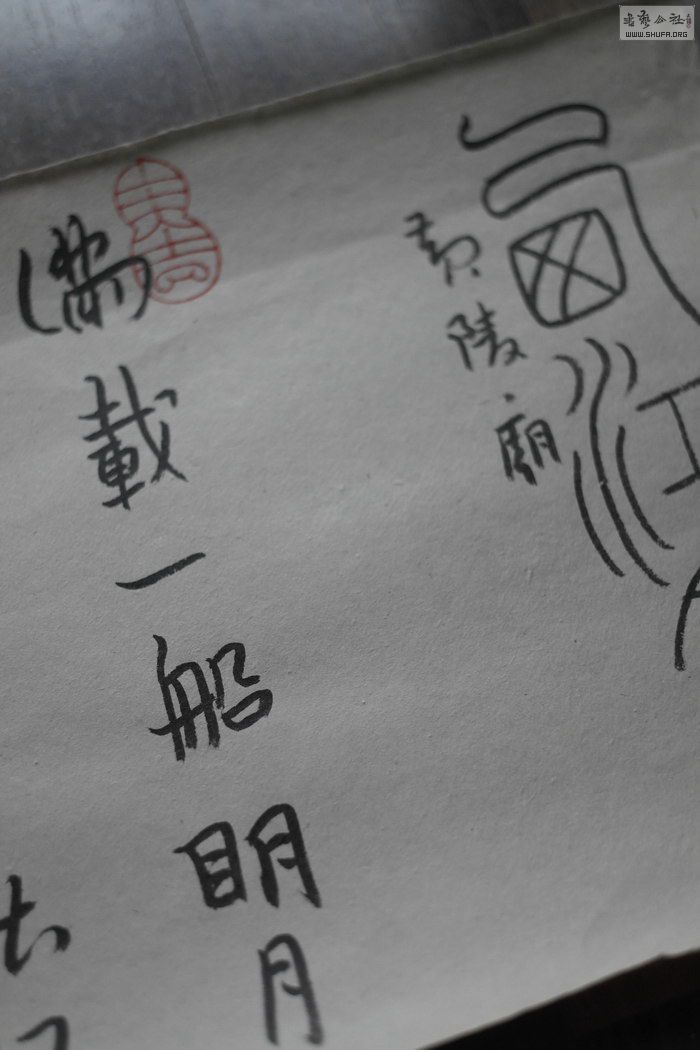 書藝公社
WWW.SHUFA.ORG
西江
黄陵廟
滿載一船眀月